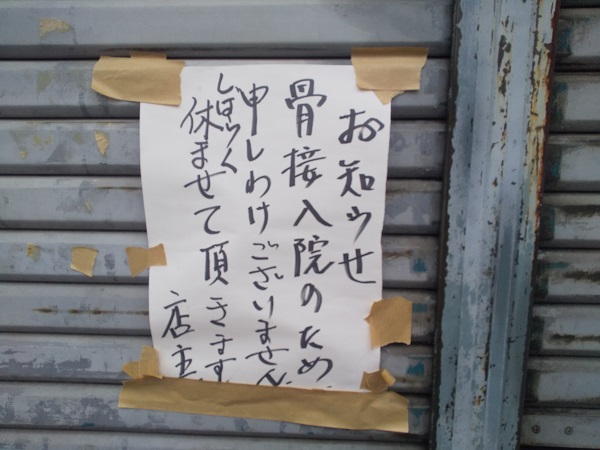 お知らせ
骨接入院のため、
申しわけございません
しばらく
休ませて頂きます
店主